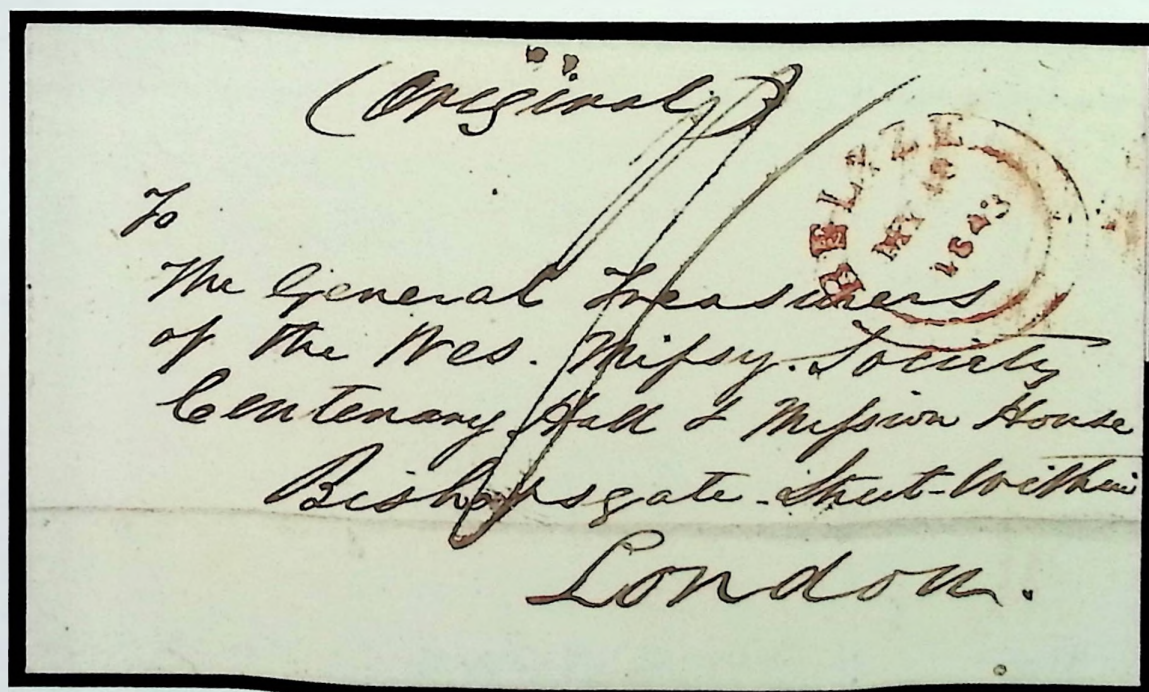 (Original)
BELIZE
MY 18
1843
To
The General Treasurers
of the Wes. Mifsy. Society
Centenary Hall & Mifsion House
Bishopsgate Street Within
London.